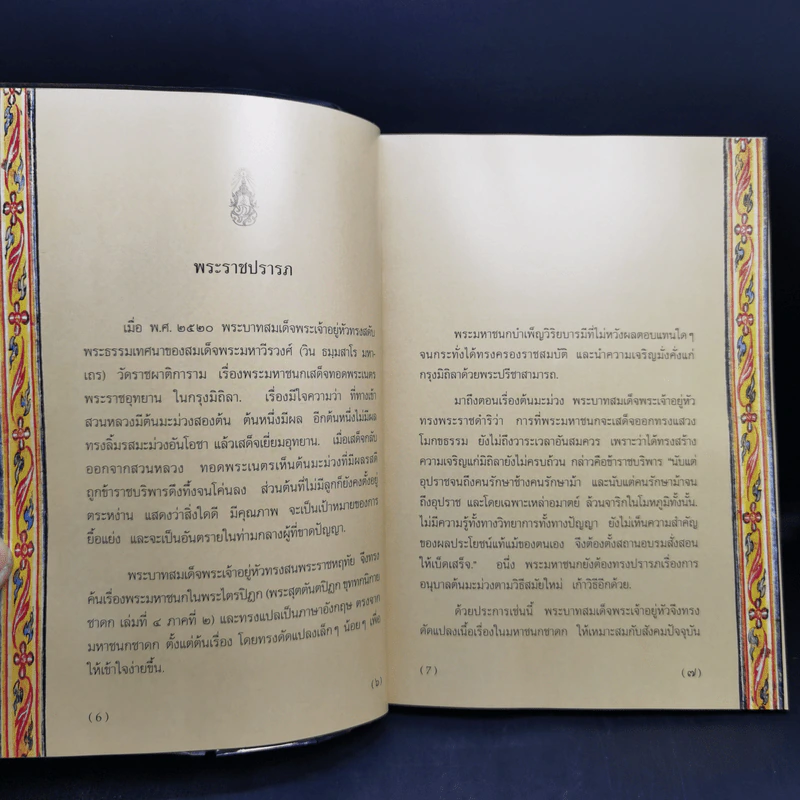 พระราชปรารภ
เมื่อ พ.ศ. ๒๕๒๐ พระบาทสมเด็จพระเจ้าอยู่หัวทรงสดับ
พระธรรมเทศนาของสมเด็จพระมหาวีรวงศ์ (วิน ธมฺมสาโร มหา-
เถร) วัดราชผาติการาม เรื่องพระมหาชนกเสด็จทอดพระเนตร
พระราชอุทยาน ในกรุงมิถิลา. เรื่องมีใจความว่า ที่ทางเข้า
สวนหลวงมีต้นมะม่วงสองต้น ต้นหนึ่งมีผล อีกต้นหนึ่งไม่มีผล
ทรงลิ้มรสมะม่วงอันโอชา แล้วเสด็จเยี่ยมอุทยาน. เมื่อเสด็จกลับ
ออกจากสวนหลวง ทอดพระเนตรเห็นต้นมะม่วงที่มีผลรสดี
ถูกข้าราชบริพารดึงทึ้งจนโค่นลง ส่วนต้นที่ไม่มีลูกก็ยังคงตั้งอยู่
ตระหง่าน แสดงว่าสิ่งใดดี มีคุณภาพ จะเป็นเป้าหมายของการ
ยื้อแย่ง และจะเป็นอันตรายในท่ามกลางผู้ที่ขาดปัญญา.
พระบาทสมเด็จพระเจ้าอยู่หัวทรงสนพระราชหฤทัย จึงทรง
ค้นเรื่องพระมหาชนกในพระไตรปิฎก (พระสุตตันตปิฎก ขุททกนิกาย
ชาดก เล่มที่ ๔ ภาคที่ ๒) และทรงแปลเป็นภาษาอังกฤษ ตรงจาก
มหาชนกชาดก ตั้งแต่ต้นเรื่อง โดยทรงดัดแปลงเล็กๆ น้อยๆ เพื่อ
ให้เข้าใจง่ายขึ้น.
(๖)
(6)
พระมหาชนกบำเพ็ญวิริยบารมีที่ไม่หวังผลตอบแทนใดๆ
จนกระทั่งได้ทรงครองราชสมบัติ และนำความเจริญมั่งคั่งแก่
กรุงมิถิลาด้วยพระปรีชาสามารถ.
มาถึงตอนเรื่องต้นมะม่วง พระบาทสมเด็จพระเจ้าอยู่หัว
ทรงพระราชดำริว่า การที่พระมหาชนกจะเสด็จออกทรงแสวง
โมกขธรรม ยังไม่ถึงวาระเวลาอันสมควร เพราะว่าได้ทรงสร้าง
ความเจริญแก่มิถิลายังไม่ครบถ้วน กล่าวคือข้าราชบริพาร "นับแต่
อุปราชจนถึงคนรักษาช้างคนรักษาม้า และนับแต่คนรักษาม้าจน
ถึงอุปราช และโดยเฉพาะเหล่าอมาตย์ ล้วนจาริกในโมหภูมิทั้งนั้น.
ไม่มีความรู้ทั้งทางวิทยาการทั้งทางปัญญา ยังไม่เห็นความสำคัญ
ของผลประโยชน์แท้แม้ของตนเอง จึงต้องตั้งสถานอบรมสั่งสอน
ให้เบ็ดเสร็จ." อนึ่ง พระมหาชนกยังต้องทรงปรารภเรื่องการ
อนุบาลต้นมะม่วงตามวิธีสมัยใหม่ เก้าวิธีอีกด้วย.
ด้วยประการเช่นนี้ พระบาทสมเด็จพระเจ้าอยู่หัวจึงทรง
ดัดแปลงเนื้อเรื่องในมหาชนกชาดก ให้เหมาะสมกับสังคมปัจจุบัน
(7)
(๗)